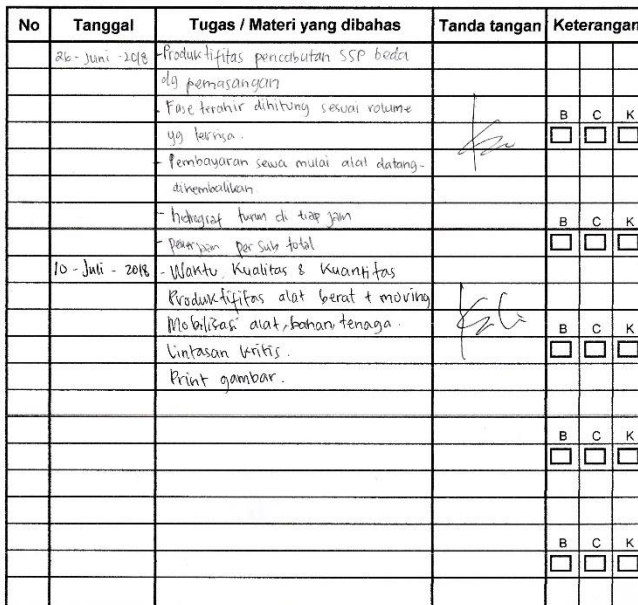 No Tanggal Tugas / Materi yang dibahas Tanda tangan Keterangan
26 - Juni - 2018 - Produktifitas pencabutan SSP beda
dg pemasangan
- Fase terahir dihitung sesuai volume
B C K
yg tersisa.
- Pembayaran sewa mulai alat datang -
dikembalikan.
- hidrograf turun di tiap jam
B C K
- per sub total
10 - Juli - 2018 - Waktu, Kualitas & Kuantitas
Produktifitas alat berat + moving
Mobilisasi alat, bahan, tenaga.
B C K
Lintasan kritis.
Print gambar.
B C K
B C K